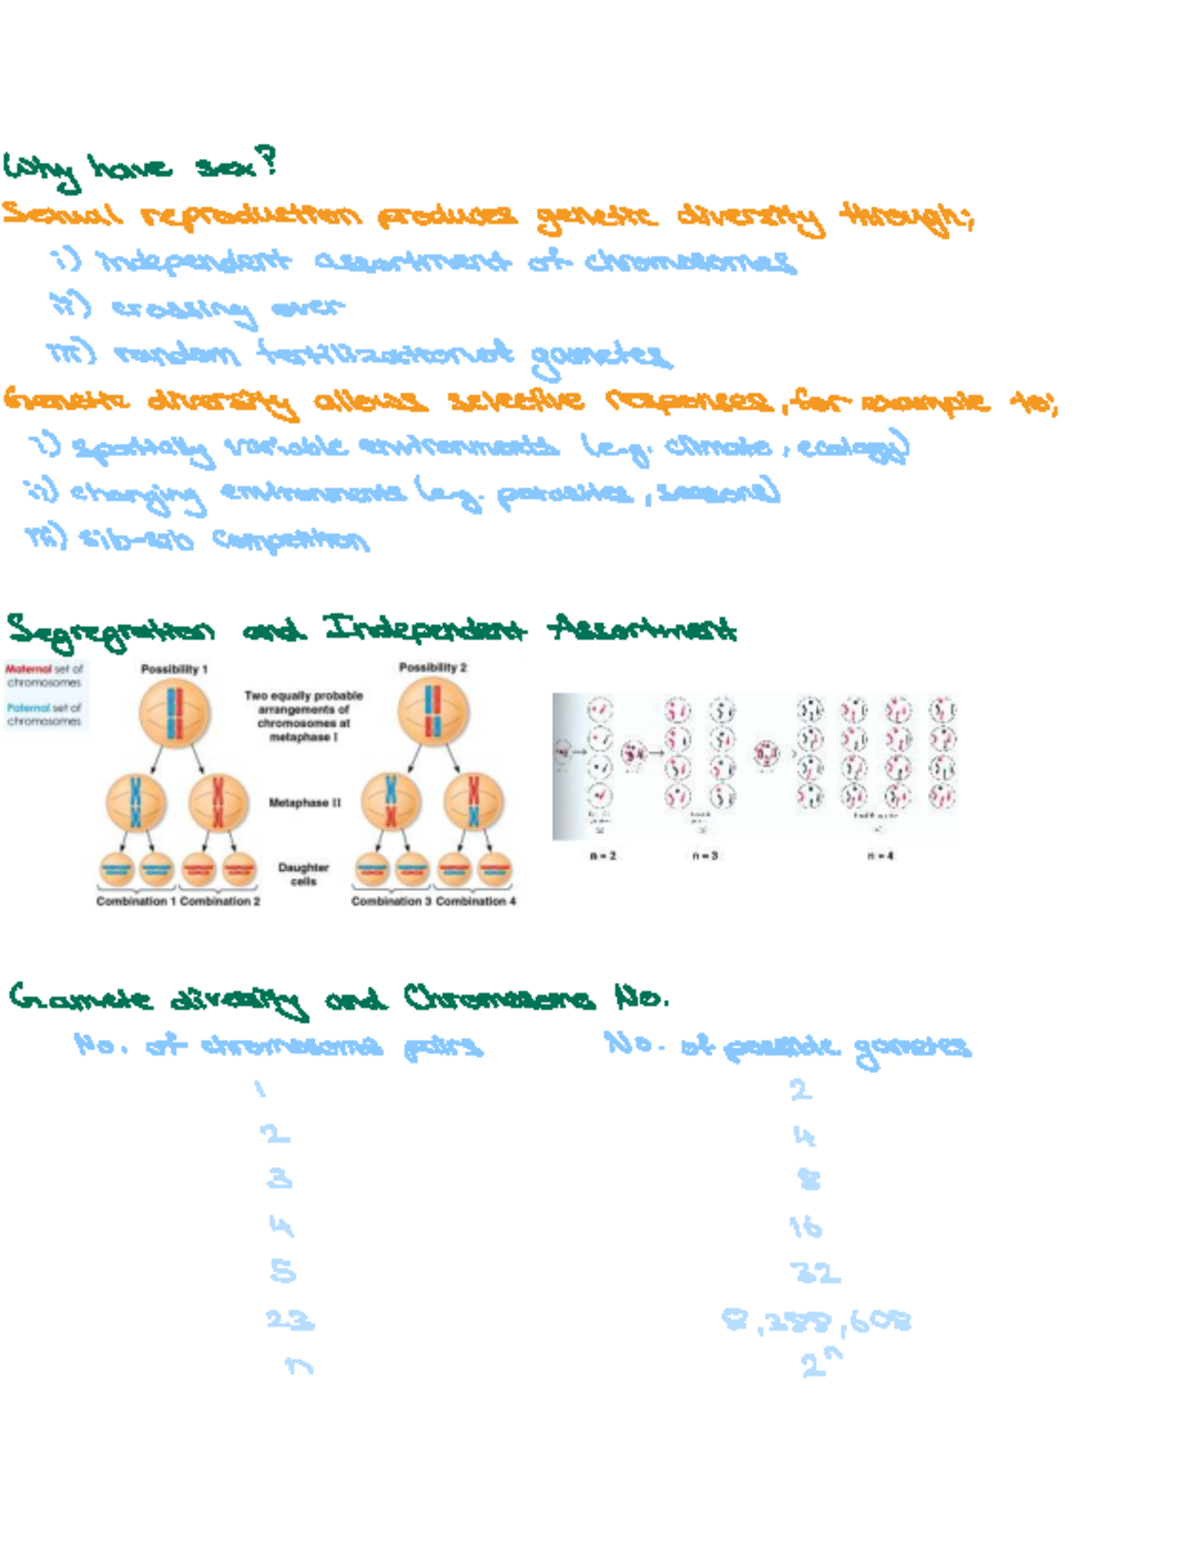 Why have sex?
Sexual reproduction produces genetic diversity through;
i) independent assortment of chromosomes
ii) crossing over
iii) random fertilization of gametes
Genetic diversity allows selective responses, for example to;
i) spatially variable environments (e.g. climate, ecology)
ii) changing environments (e.g. parasites, seasons)
iii) sib-sib competition
Segregration and Independent Assortment
Maternal set of
chromosomes
Paternal set of
chromosomes
Possibility 1
Possibility 2
Two equally probable
arrangements of
chromosomes at
metaphase I
Metaphase II
Daughter
cells
Combination 1 Combination 2
Combination 3 Combination 4
n = 2
n = 3
n = 4
Gamete diversity and Chromosome No.
No. of chromosome pairs No. of possible gametes
1 2
2 4
3 8
4 16
5 32
23 8,388,608
n 2ⁿ